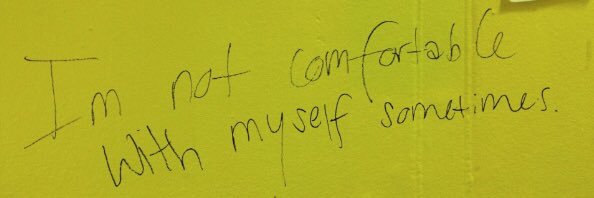 Im not comfortable
With myself sometimes.